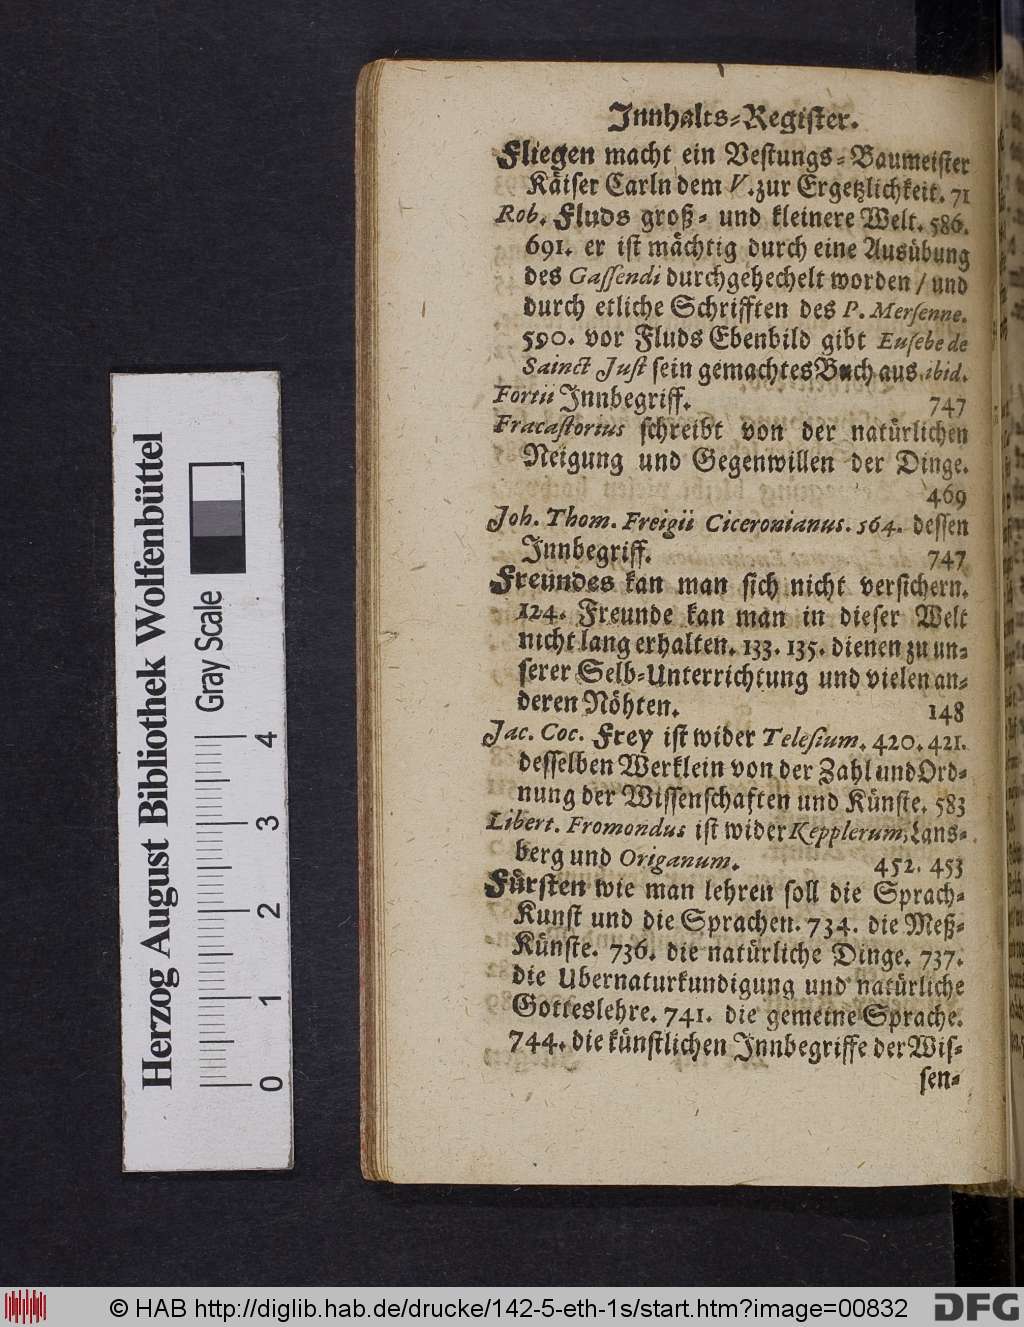 Innhalts-Register.
Fliegen macht ein Vestungs-Baumeister
Käiser Carln dem V. zur Ergetzlichkeit. 71
Rob. Fluds groß- und kleinere Welt. 586.
691. er ist mächtig durch eine Ausübung
des Gassendi durchgehechelt worden / und
durch etliche Schrifften des P. Mersenne.
590. vor Fluds Ebenbild gibt Eusebe de
Sainct Just sein gemachtes Buch aus ibid.
Fortii Innbegriff. 747
Fracastorius schreibt von der natürlichen
Neigung und Gegenwillen der Dinge.
469
Joh. Thom. Freigii Ciceronianus. 564. dessen
Innbegriff. 747
Freundes kan man sich nicht versichern.
124. Freunde kan man in dieser Welt
nicht lang erhalten. 133. 135. dienen zu un-
serer Selb-Unterrichtung und vielen an-
deren Nöhten. 148
Jac. Coc. Frey ist wider Telesium. 420. 421.
desselben Werklein von der Zahl und Ord-
nung der Wissenschaften und Künste. 583
Libert. Fromondus ist wider Kepplerum, Lans-
berg und Origanum. 452. 453
Fürsten wie man lehren soll die Sprach-
Kunst und die Sprachen. 734. die Meß-
Künste. 736. die natürliche Dinge. 737.
die Ubernaturkundigung und natürliche
Gotteslehre. 741. die gemeine Sprache.
744. die künstlichen Innbegriffe der Wis-
sen-
Herzog August Bibliothek Wolfenbüttel
Gray Scale
0 1 2 3 4
© HAB http://diglib.hab.de/drucke/142-5-eth-1s/start.htm?image=00832
DFG